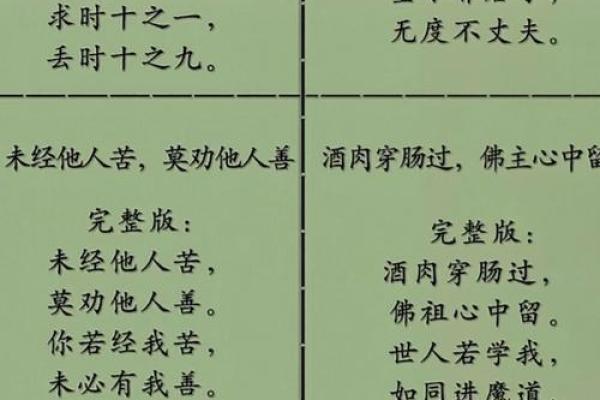 求时十之一，
丢时十之九。
无度不丈夫。
未经他人苦，莫劝他人善
完整版：
未经他人苦，
莫劝他人善。
你若经我苦，
未必有我善。
酒肉穿肠过，佛主心中留
完整版：
酒肉穿肠过，
佛祖心中留。
世人若学我，
如同进魔道。